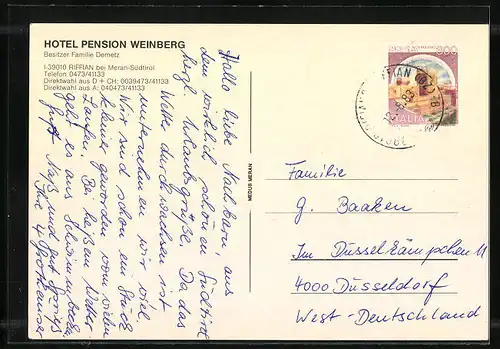 HOTEL PENSION WEINBERG
Besitzer Familie Demetz
I-39010 RIFFIAN bei Meran-Südtirol
Telefon 0473/41133
Direktwahl aus D + CH: 0039473/41133
Direktwahl aus A: 040473/41133
Hallo liebe Nachbarn, aus
dem wirklich schönen Südtirol
herzl. Urlaubsgrüße. Da das
Wetter durchwachsen ist
unternehmen wir viel.
Wir sind schon ein Stück
kleiner geworden vom vielen
Laufen. Bei heißem Wetter
geht es aus Schwimmbecken.
Naß und gut
Ihre 4
MEDUS MERAN
300
ITALIA
RIFFIAN
Familie
G. Baaken
Im Düsselkämpchen 11
4000 Düsseldorf
West-Deutschland